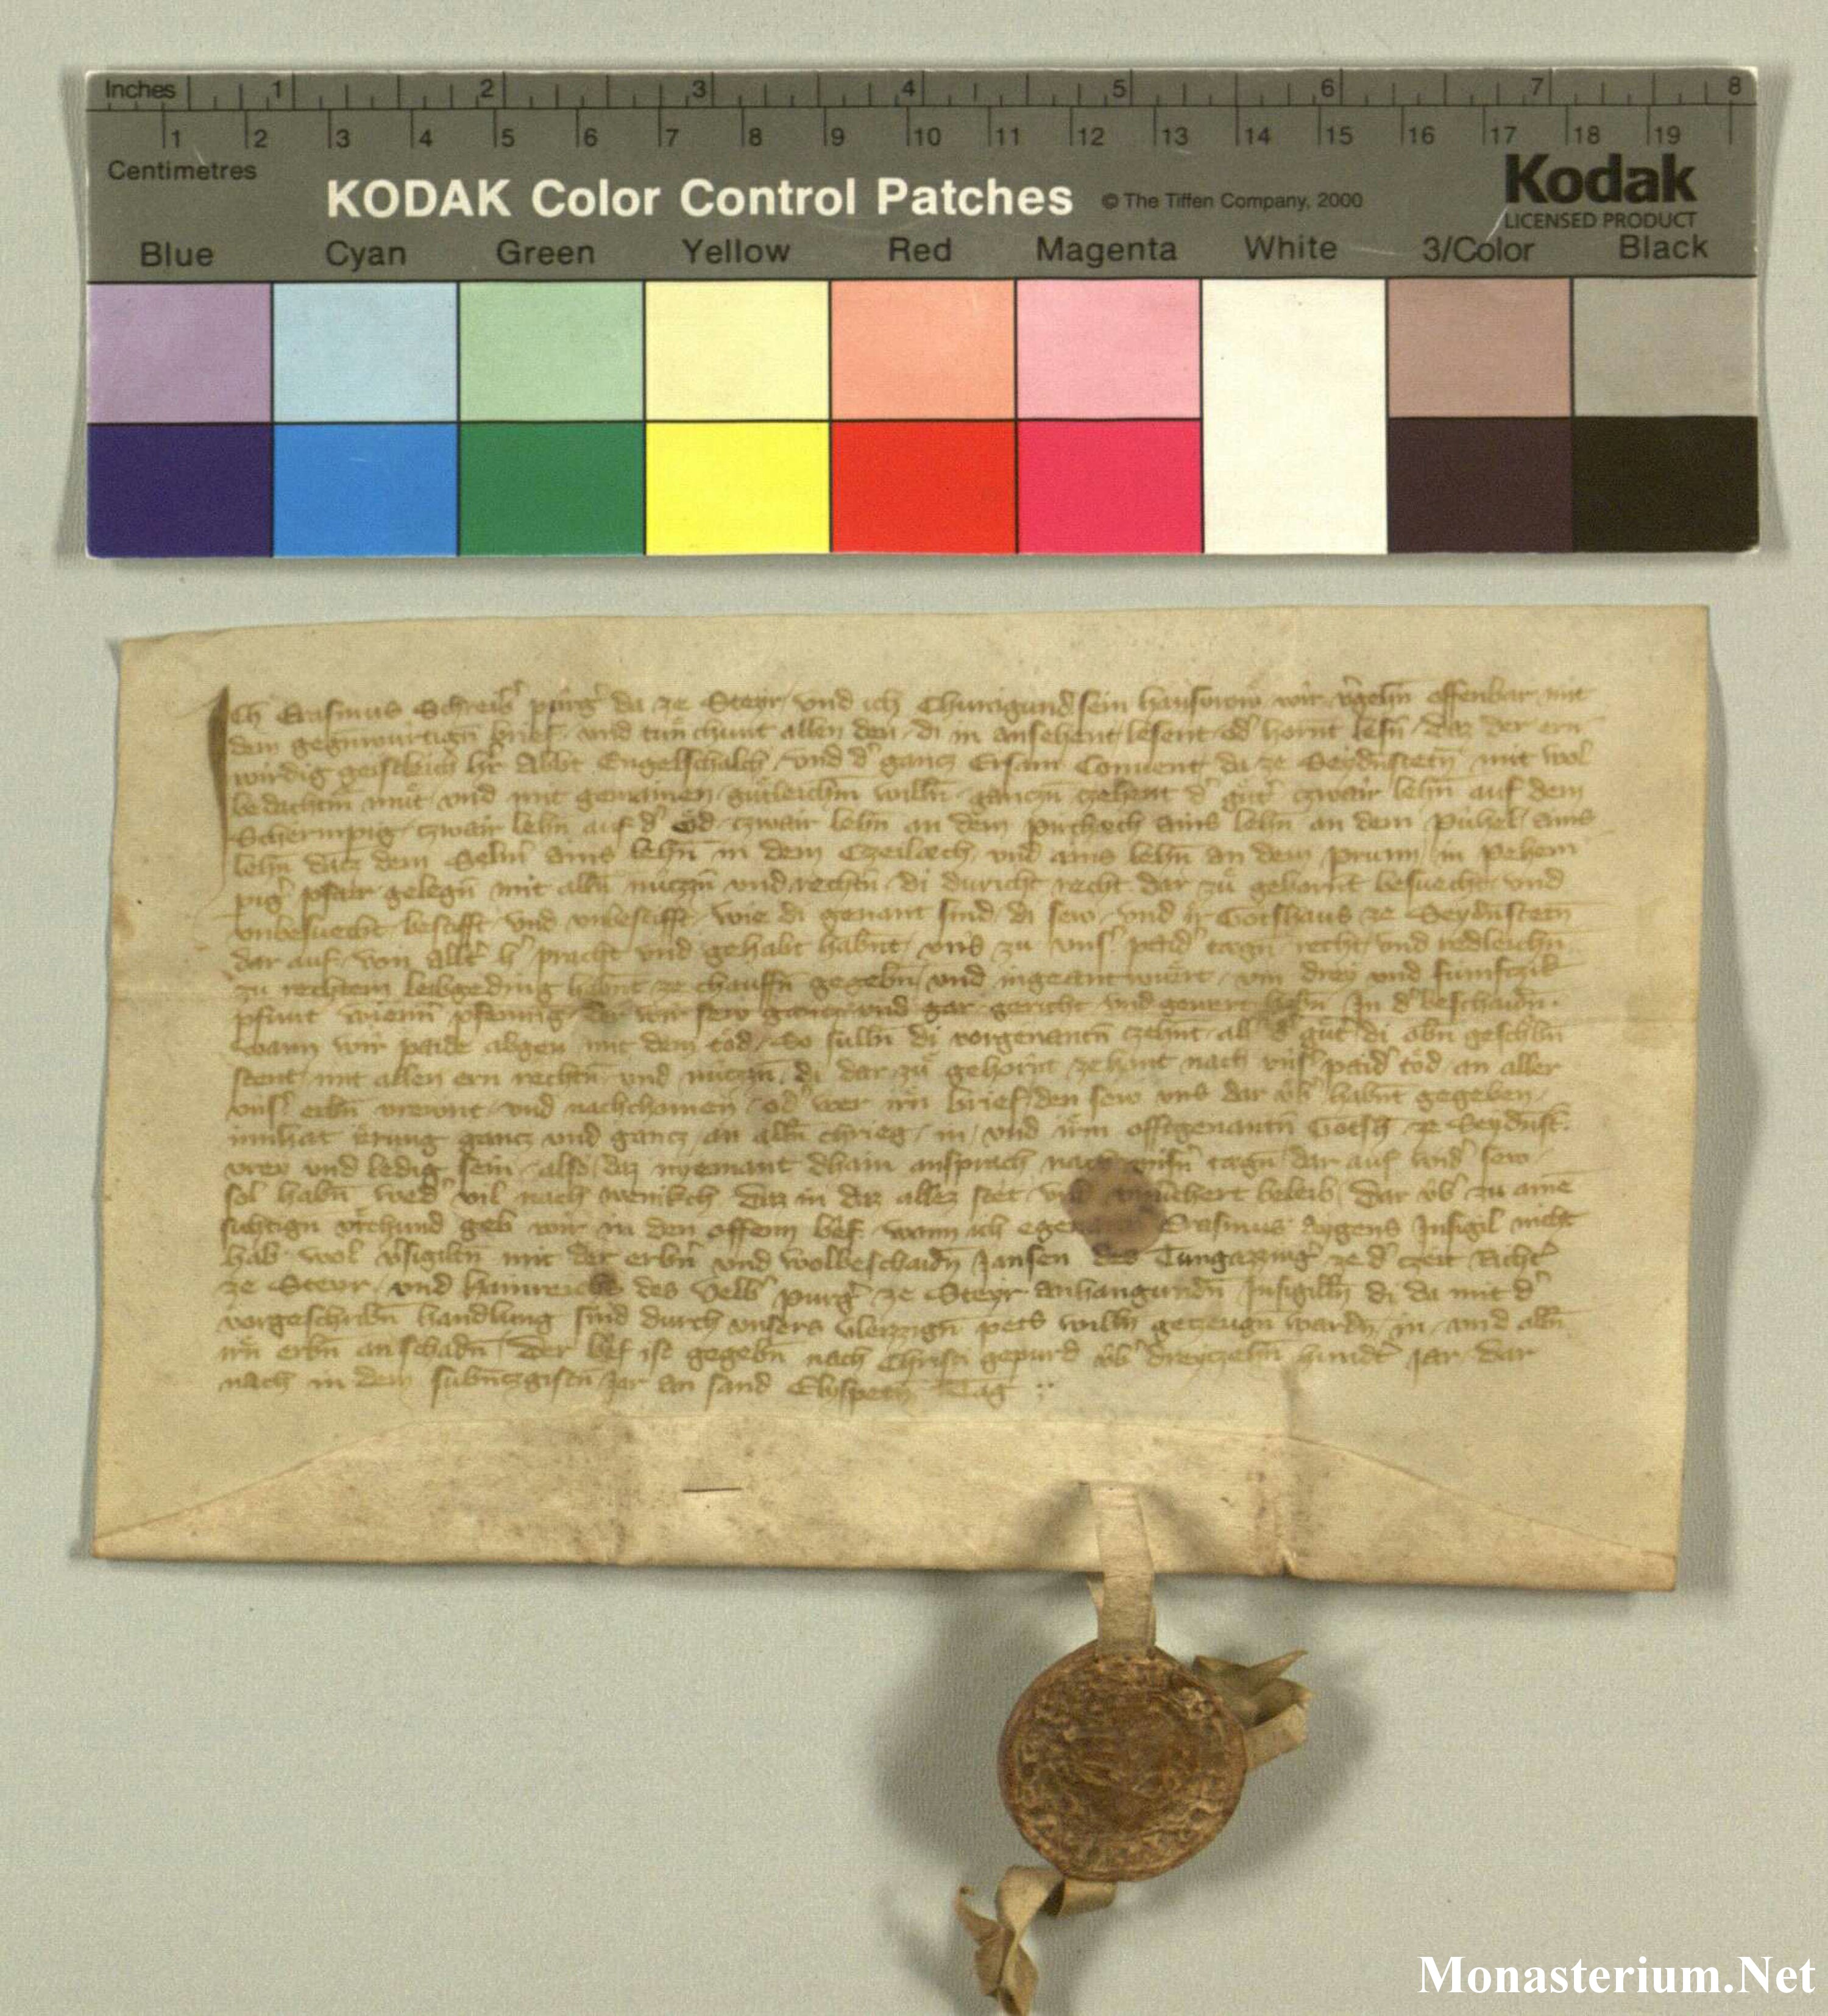 Inches 1 2 3 4 5 6 7 8
1 2 3 4 5 6 7 8 9 10 11 12 13 14 15 16 17 18 19
Centimetres
KODAK Color Control Patches © The Tiffen Company, 2000 Kodak
LICENSED PRODUCT
Blue Cyan Green Yellow Red Magenta White 3/Color Black
Ich Erasmus Schreib' purg' da ze Steyr und ich Chunigund sein hausvrow wir v'gehn offenbar mit
dem gegnwurtign brief und tun chunt allen den di in ansehent lesent od' hornt lesn daz der ern
wirdig geistleich h'r Abbt Engelschalch und d' gancz Ersam Convent da ze Seydnstetn mit wol
bedachtm mut und mit gemainen gutleichm willn ganczn czehent d' gut' czwair lehn auf dem
czwair lehn auf d' Öd czwair lehn an dem ains lehn an dem Pühel ains
lehn datz dem ains lehn in dem und ains lehn an dem prunn in pehem
pig' pfarr gelegn mit alln nuczn und rechtn di duricht recht dar zu gehornt besuecht und
unbesuecht bestifft und unbestifft wie di genant sind di sew und ir Gotshaus ze Seydnstetn
dar auf von allt' h' pracht und gehabt habnt uns zu uns' paid' tagn recht und redleichn
zu rechtem leibgeding habnt ze chauffn gegebn und ingeantwurt um drey und fumfczik
pfunt wienn' pfenning der wir sew gancz und gar gericht und gewert habn In d' beschaidn
wann wir paide abgen mit dem tod So sulln di vorgenantn czehnt all d' gut di obn geschbn
stent mit allen ern rechtn und nuczn di dar zu gehornt zehant nach uns' paid' tod an aller
uns' erbn vrewnt und nachchomen od' wer irn brief den sew uns dar üb' habnt gegeben
innhat irrung gancz und gancz an alln chrieg in und irm offtgenantn Gotsh ze Seydnst
vrey und ledig sein also daz nyemant dhain ansprach nach unsn tagn dar auf und' sew
sol habn wed' vil nach wenikch daz in daz allez stet und beleib dar üb' zu aine
sichtign urchund geb wir in den offenn b'ef wann ich Erasmus aygens Insigil nicht
hab wol v'sigiltn mit der erbn und wolbeschaidn Jansen des ze d' czeit Richt'
ze Steyr und Hainreichs des purg' ze Steyr anhangundn Insigilln di da mit d'
vorgeschribn handlung sind durch unsers vleizzign pets willn geczeugn wordn in und alln
irn erbn an schadn Der b'ef ist gegebn nach Christi gepurd üb' dreyczehn hundt' jar dar
nach in dem jar an sand Elyspetn Tag
Monasterium.Net